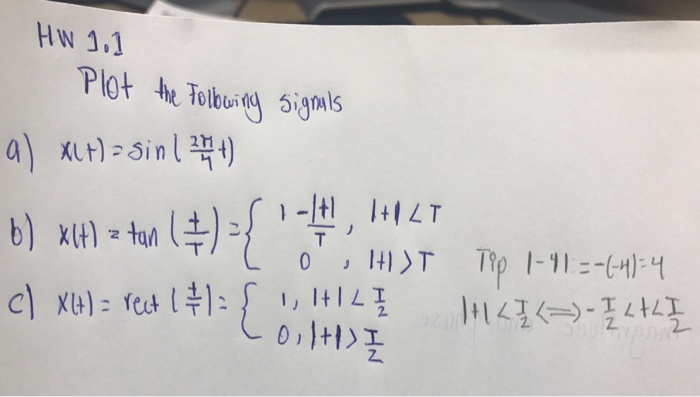 HW 1.1
Plot the Following signals
a) x(t) = sin( 2π/4 t)
b) x(t) = tan (t/T) = { 1 - |t|/T , |t| < T
0 , |t| > T
Tip |-4| = -(-4) = 4
c) x(t) = rect (t/T) = { 1, |t| < T/2
0, |t| > T/2
|t| < T/2 <=> - T/2 < t < T/2